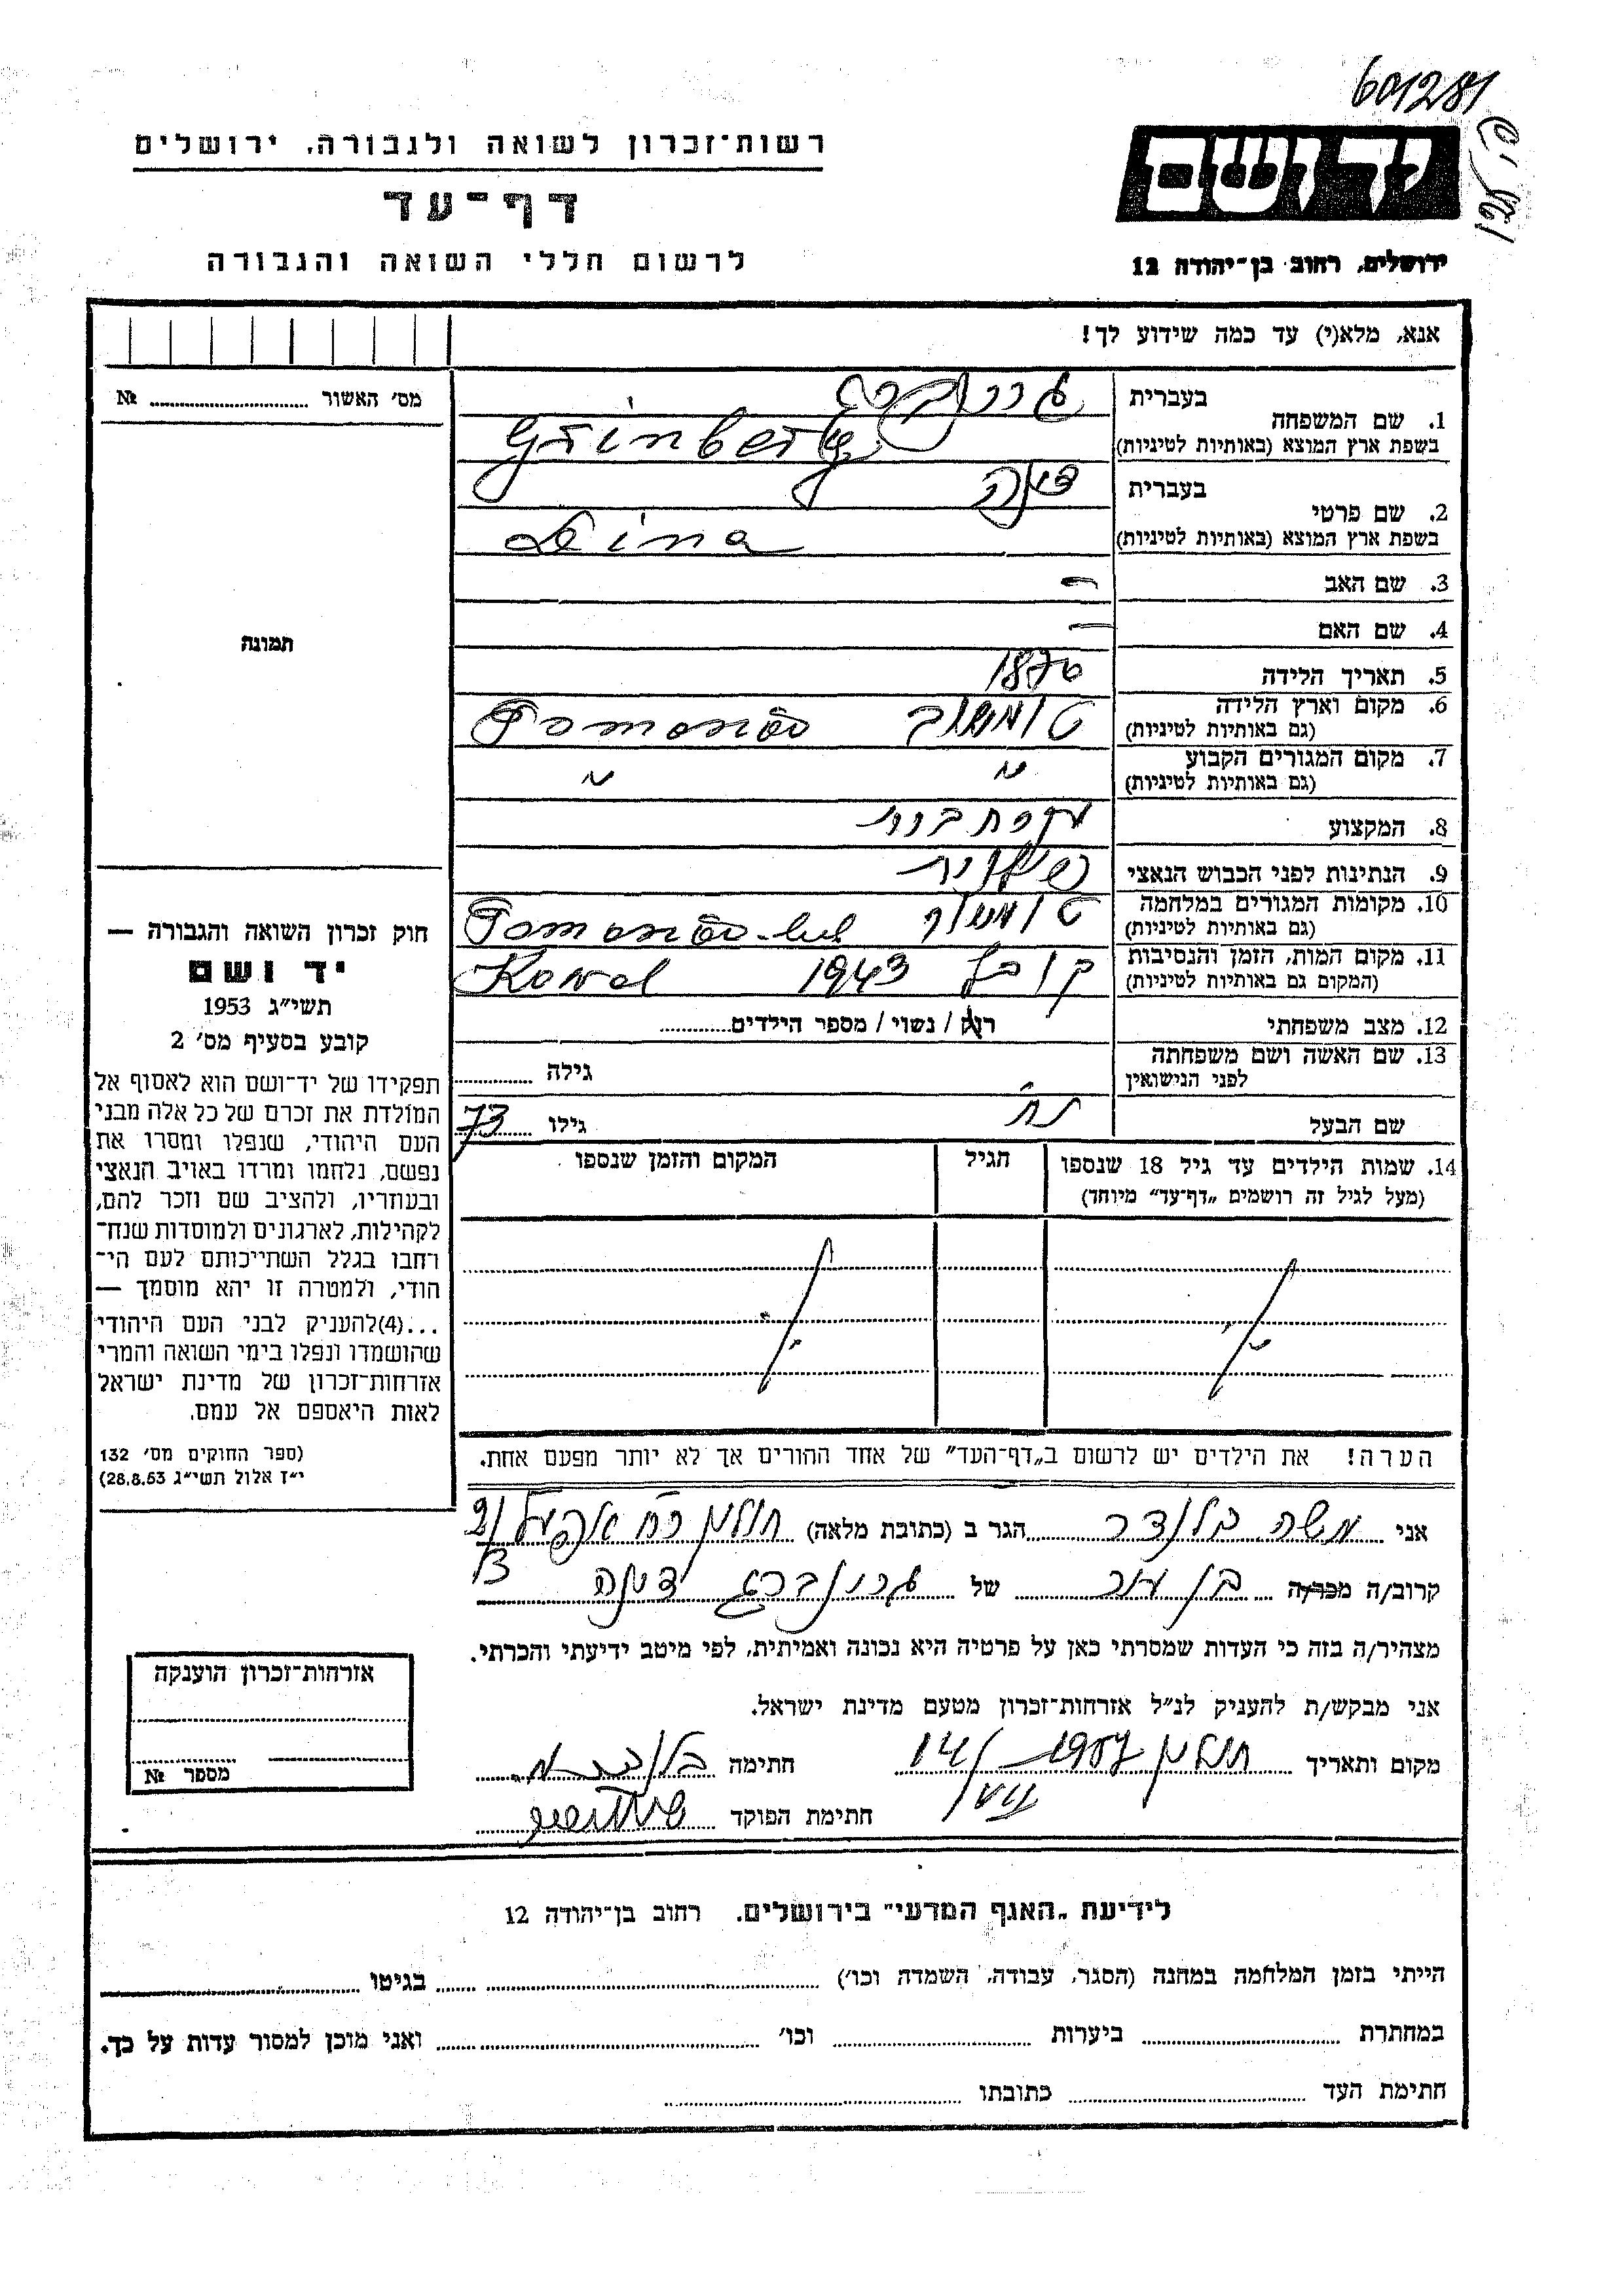 601281
יד ושם
רשות־זכרון לשואה ולגבורה, ירושלים
דף־עד
לרשום חללי השואה והגבורה
ירושלים, רחוב בן־יהודה 12
אנא, מלא(י) עד כמה שידוע לך!
מס׳ האשור ........ №
תמונה
חוק זכרון השואה והגבורה —
יד ושם
תשי״ג 1953
קובע בסעיף מס׳ 2
תפקידו של יד־ושם הוא לאסוף אל
המולדת את זכרם של כל אלה מבני
העם היהודי, שנפלו ומסרו את
נפשם, נלחמו ומרדו באויב הנאצי
ובעוזריו, ולהציב שם וזכר להם,
לקהילות, לארגונים ולמוסדות שנח־
רחבו בגלל השתייכותם לעם הי־
הודי, ולמטרה זו יהא מוסמך —
...(4)להעניק לבני העם היהודי
שהושמדו ונפלו בימי השואה והמרי
אזרחות־זכרון של מדינת ישראל
לאות היאספם אל עמם.
(ספר החוקים מס׳ 132
י״ז אלול תשי״ג 28.8.53)
1. שם המשפחה
בעברית גרינברג
בשפת ארץ המוצא (באותיות לטיניות) Grinberg
2. שם פרטי
בעברית דינה
בשפת ארץ המוצא (באותיות לטיניות) Dina
3. שם האב –
4. שם האם –
5. תאריך הלידה 1870
6. מקום וארץ הלידה טומשוב
(גם באותיות לטיניות)
7. מקום המגורים הקבוע
(גם באותיות לטיניות)
8. המקצוע עקרת בית
9. הנתינות לפני הכבוש הנאצי פולנית
10. מקומות המגורים במלחמה טומשוב
(גם באותיות לטיניות)
11. מקום המות, הזמן והנסיבות קובל 1943 Kowel
(המקום גם באותיות לטיניות)
12. מצב משפחתי רוק / נשוי / מספר הילדים........
13. שם האשה ושם משפחתה
לפני הנישואין גילה ........
שם הבעל נח גילו 73
14. שמות הילדים עד גיל 18 שנספו הגיל המקום והזמן שנספו
(מעל לגיל זה רושמים „דף־עד״ מיוחד)
הערה! את הילדים יש לרשום ב„דף־העד״ של אחד ההורים אך לא יותר מפעם אחת.
אני משה בלנדר הגר ב (כתובת מלאה) חולון
קרוב/ה מכר/ה של גרינברג דינה
מצהיר/ה בזה כי העדות שמסרתי כאן על פרטיה היא נכונה ואמיתית, לפי מיטב ידיעתי והכרתי.
אני מבקש/ת להעניק לנ״ל אזרחות־זכרון מטעם מדינת ישראל.
מקום ותאריך חולון 14/VII 1957 חתימה
חתימת הפוקד
אזרחות־זכרון הוענקה
מספר №
לידיעת „האגף המדעי״ בירושלים. רחוב בן־יהודה 12
הייתי בזמן המלחמה במחנה (הסגר, עבודה, השמדה וכו׳) ........ בגיטו ........
במחתרת ........ ביערות ........ וכו׳ ........ ואני מוכן למסור עדות על כך.
חתימת העד ........ כתובתו ........